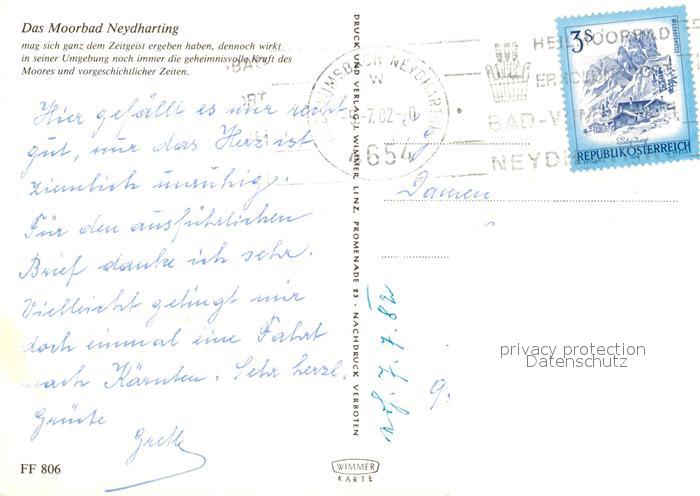 Das Moorbad Neydharting
mag sich ganz dem Zeitgeist ergeben haben, dennoch wirkt
in seiner Umgebung noch immer die geheimnisvolle Kraft des
Moores und vorgeschichtlicher Zeiten.
Hier gefällt es mir recht
gut, nur das Herz ist
ziemlich unruhig.
Für den ausführlichen
Brief danke ich sehr.
Vielleicht gelingt mir
doch einmal eine Fahrt
nach Kärnten. Sehr herzl.
Grüße
Grete
FF 806
DRUCK UND VERLAG J. WIMMER, LINZ, PROMENADE 23 - NACHDRUCK VERBOTEN
WIMMER
KARTE
NEYDHARTING
4654
HEILMOORBAD
BAD-WIMSBACH
NEYDHARTING
3S
REPUBLIK ÖSTERREICH
Damen
7. 7. 82
privacy protection
Datenschutz